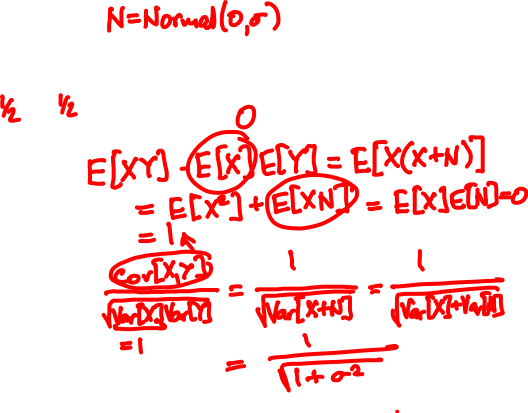 N=Normal(0,σ)
1/2 1/2
0
E[XY] - E[X]E[Y] = E[X(X+N)]
= E[X²] + E[XN] = E[X]E[N]=0
= 1
Cov[X,Y] / √Var[X]Var[Y] = 1 / √Var[X+N] = 1 / √Var[X]+Var[N]
=1
= 1 / √1+σ²